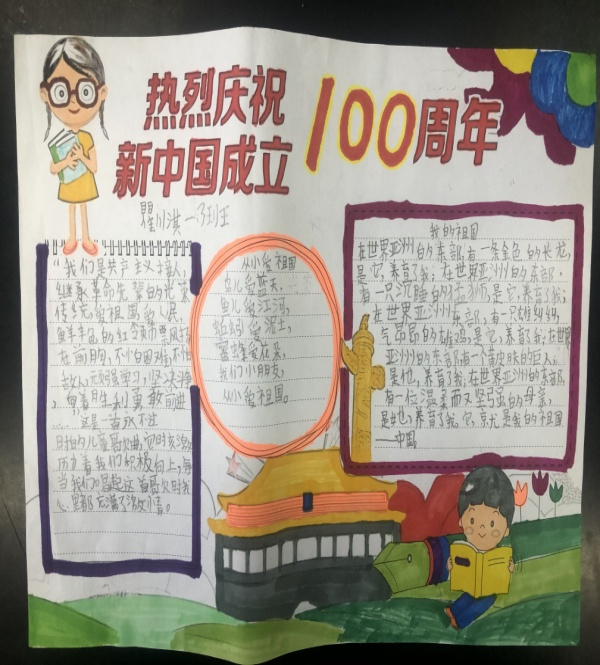 热烈庆祝
新中国成立
100周年
"我们是共产主义接人,
继承革命先辈的光荣
传统,爱祖国爱人民,
鲜艳的红领巾飘扬
在前胸,不怕困难,不怕
敌人,顽强学习,坚决
向着胜利勇敢前进
这是一首永不过
时的儿童歌曲,时刻激
历着我们积极向上,每
当我们唱起这首歌时我
心里都充满了激情。
从小爱祖国
鸟儿爱蓝天,
鱼儿爱江河,
蚯蚓爱泥土,
蜜蜂爱花朵,
我们小朋友,
从小爱祖国。
我的祖国
在世界亚洲的东部,有一条金色的长龙,
是它,养育了我;在世界亚洲的东部,
有一只沉睡的猛狮,是它,养育了我;
在世界亚洲东部,有一只雄纠纠,
气昂昂的雄鸡,是它,养育了我;在世界
亚洲的东部有一个黄皮肤的巨人,
是他,养育了我;在世界亚洲的东部,
有一位温柔而又坚强的母亲,
是她,养育了我,它,就是我的祖国
——中国